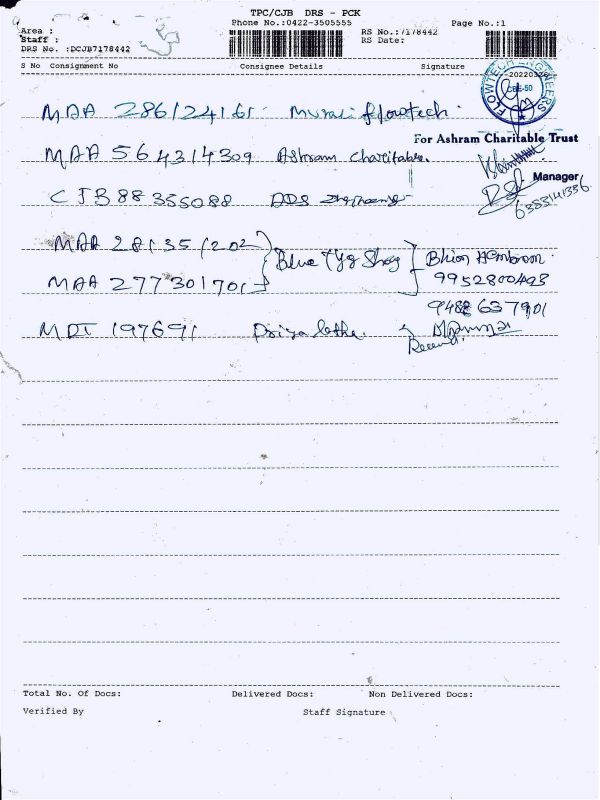 TPC/CJB DRS - PCK
Phone No.:0422-3505555
Page No.:1
Area :
Staff :
RS No.:7178442
DRS No. :DCJB7178442
RS Date:
S No Consignment No Consignee Details Signature
FLOWTECH ENGINEERS
CBE-50
MAA 286124165 Murali flowtech
For Ashram Charitable Trust
MAA 564314309 Ashram Charitable.
Manager
6383141336
CJB 88355088 ADS Engineering
MAA 281351202
Blue
MAA 277301701
9952800493
9488637901
MDI 197691 Priya latha.
Received
Total No. Of Docs: Delivered Docs: Non Delivered Docs:
Verified By Staff Signature